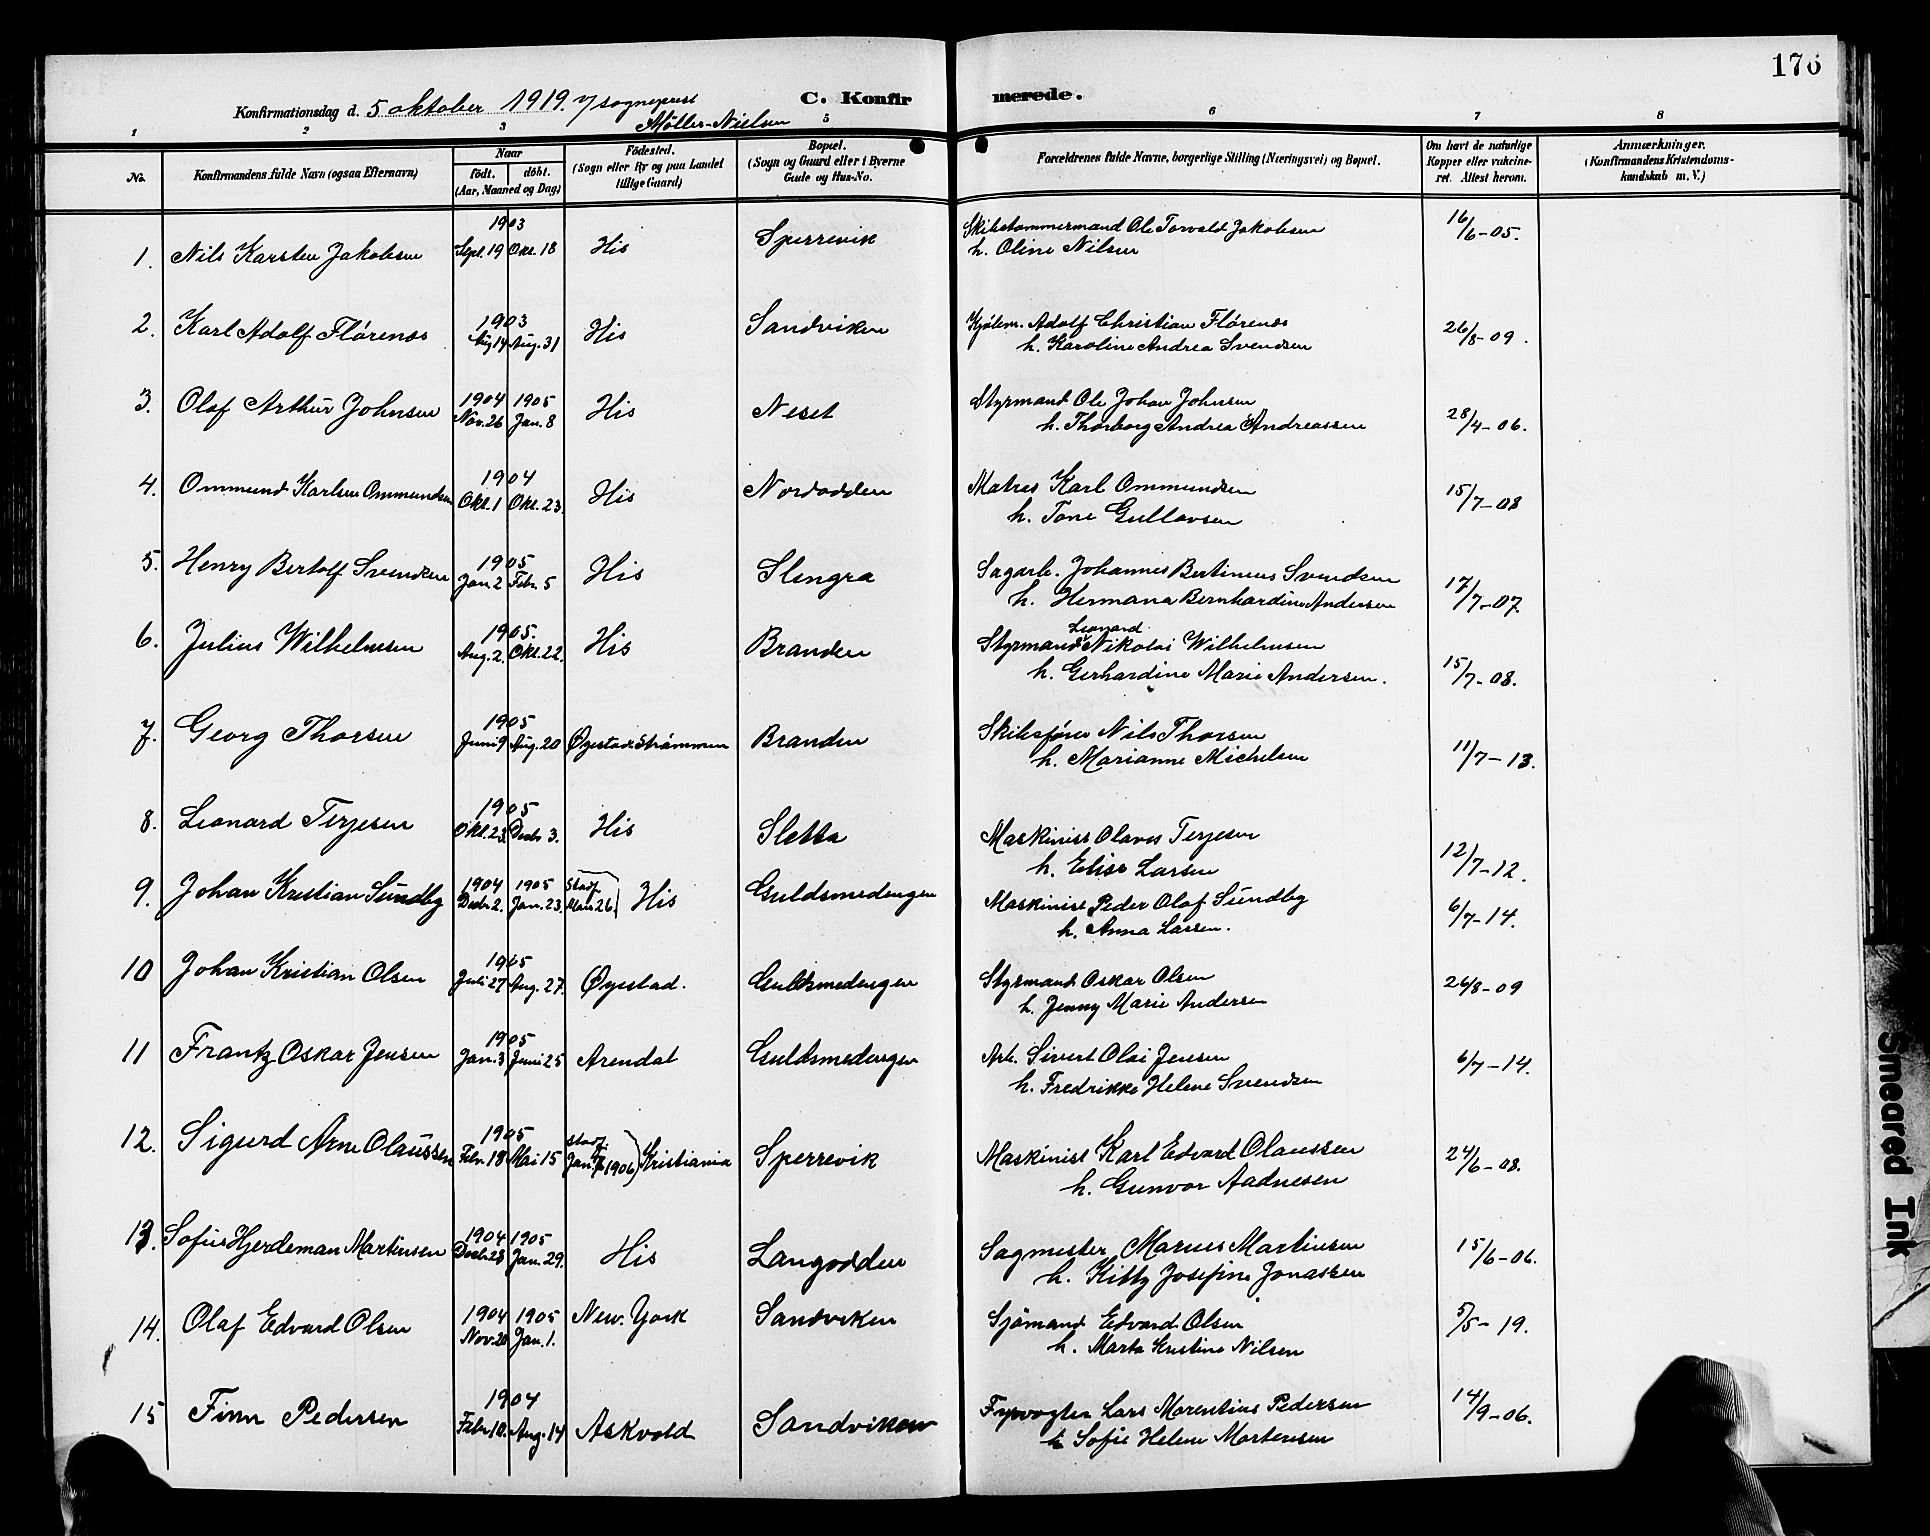 176
Konfirmationsdag d. 5 oktober 1919. v/ sogneprest
Møller-Nielsen
C. Konfirmerede.
1 2 3 5 6 7 8
No.
Konfirmandens fulde Navn (ogsaa Efternavn)
Naar
födt. döbt.
(Aar, Maaned og Dag)
Födested.
(Sogn eller By og paa Landet
tillige Gaard)
Bopæl.
(Sogn og Gaard eller i Byerne
Gade og Hus-No.
Forældrenes fulde Navne, borgerlige Stilling (Næringsvei) og Bopæl.
Om havt de naturlige
Kopper eller vakcine-
ret. Attest herom.
Anmærkninger.
(Konfirmandens Kristendoms-
kundskab m. V.)
1903
1. Nils Karsten Jakobsen Sept. 19 Okt. 18 His Sperrevik Skibstømmermand Ole Torvald Jakobsen 16/6-05.
h. Oline Nilsen
1903
2. Karl Adolf Flørenæs Aug 14 Aug. 31 His Sandviken Kjølem. Adolf Christian Flørenæs 26/8-09.
h. Karoline Andrea Svendsen
1904 1905
3. Olaf Arthur Johnsen Nov. 26 Jan. 8 His Neset Styrmand Ole Johan Johnsen 28/4-06.
h. Thorborg Andrea Andreassen
1904
4. Ommund Karlsen Ommundsen Okt. 1 Okt. 23. His Nordodden Matros Karl Ommundsen 15/7-08
h. Tone Gullovsen
1905
5. Henry Bertolf Svendsen Jan. 2 Febr. 5 His Slengra Sagarb. Johannes Bertineus Svendsen 17/7-07.
h. Hermana Bernhardine Andersen
1905.
Leonard
6. Julius Wilhelmsen Aug. 2. Okt. 22. His Branden Styrmand Nikolai Wilhelmsen 15/7-08.
h. Gerhardine Marie Andersen.
1905
7. Georg Thorsen Juni 9 Aug. 20 Øyestad Strømmen Branden Skibsfører Nils Thorsen 11/7-13.
h. Marianne Michelsen
1905
8. Leonard Terjesen Okt. 23 Decbr 3. His Sletta Maskinist Olaves Terjesen 12/7-12.
h. Elise Larsen
1904 1905 Stadf.
9. Johan Kristian Sundby Decbr 2. Jan. 23. Mars 26. His Guldsmedengen Maskinist Peder Olaf Sundby 6/7-14.
h. Anna Larsen.
1905
10 Johan Kristian Olsen Juli 27 Aug. 27. Øyestad. Guldsmedengen Styrmand Oskar Olsen 26/8-09
h. Jenny Marie Andersen
1905
11 Frantz Oskar Jensen Jan. 3 Juni 25 Arendal Guldsmedengen Arb. Sivert Olai Jensen 6/7-14.
h. Fredrikke Helene Svendsen
1905 stadf.
12. Sigurd Arne Olaussen Febr. 18 Mai 15 Jan. 1906 Kristiania Sperrevik Maskinist Karl Edvard Olaussen 24/6-08.
h. Gunvor Aadnesen
1904 1905
13. Sofus Hjerdeman Martinsen Decbr 28 Jan. 29. His Langodden Sagmester Marius Martinsen 15/6-06.
h. Kitty Josefine Jonassen
1904 1905
14. Olaf Edvard Olsen Nov. 20 Jan. 1. New. York Sandviken Sjømand Edvard Olsen 5/5-19.
h. Marta Kristine Nilsen
1904
15 Finn Pedersen Febr. 10. Aug. 14 Askvold Sandviken Fyrvogter Lars Morentius Pedersen 14/9-06.
h Sofie Helene Mortensen
Smeared Ink